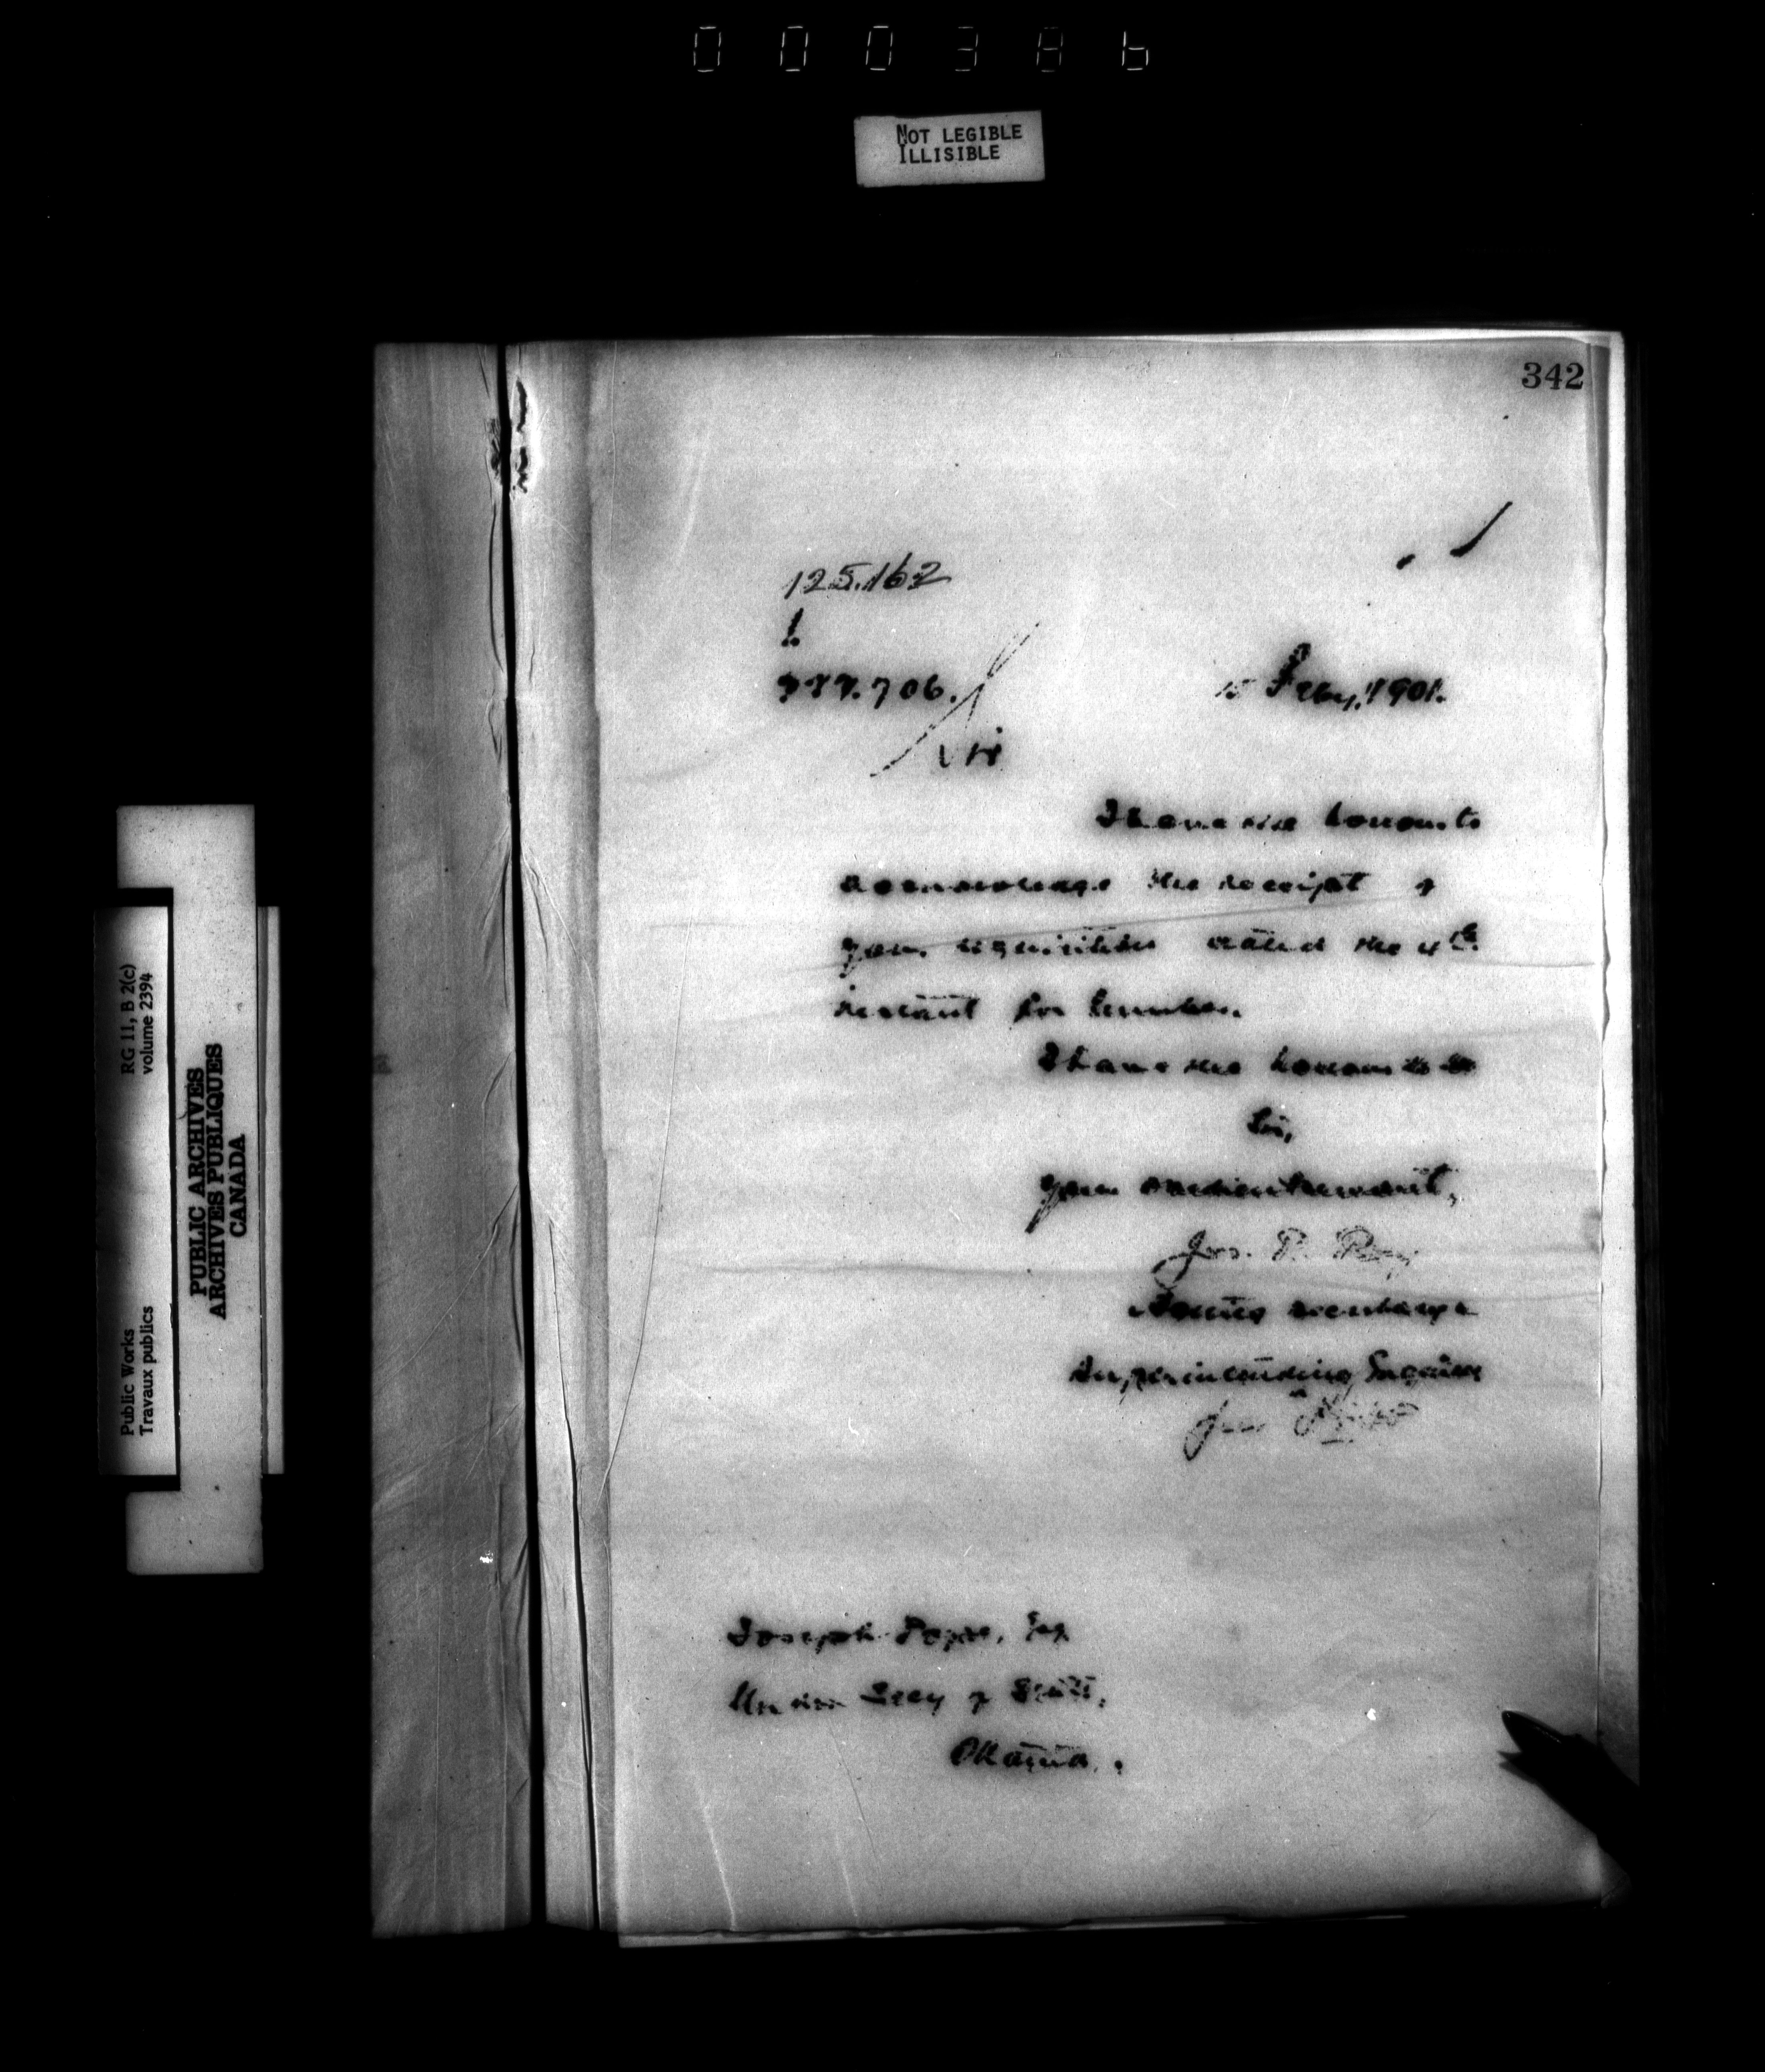 000386
NOT LEGIBLE
ILLISIBLE
342
125.162
1.
706.
Feby, 1901.
Sir
I have the honour to
acknowledge the receipt of
your requisition dated the 4th
instant for lumber.
I have the honour to be
Sir,
Your obedient servant,
Jos. R. Roy
Superintending Engineer
Joseph Pope, Esq
Under Secy of State,
Ottawa.
Public Works
Travaux publics
RG 11, B 2(c)
volume 2394
PUBLIC ARCHIVES
ARCHIVES PUBLIQUES
CANADA